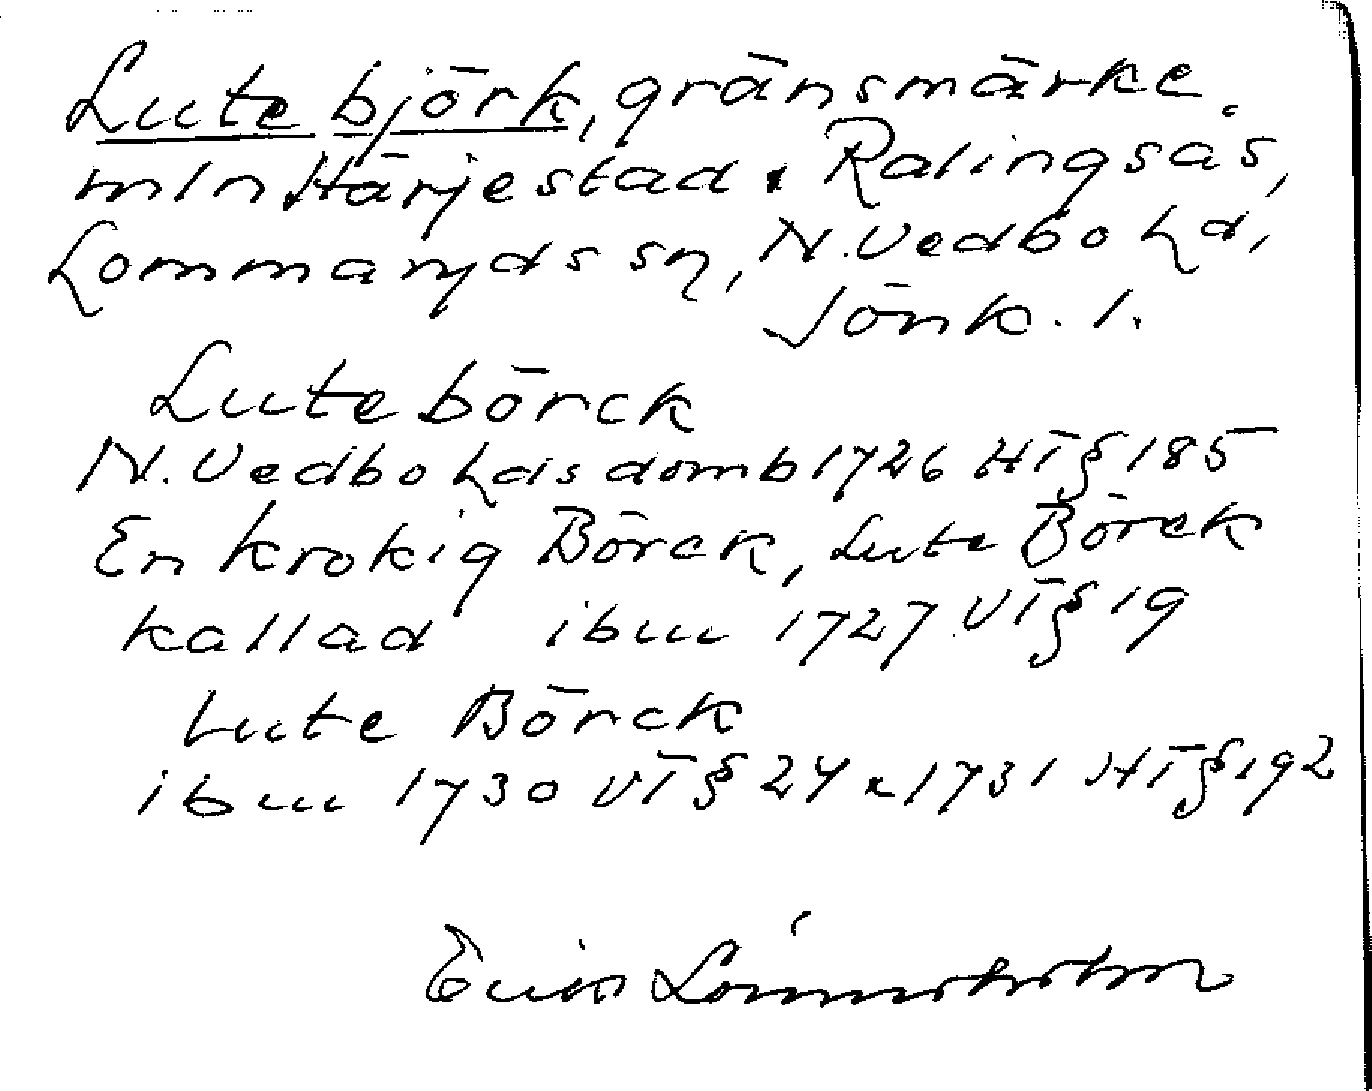 Lute björk, gränsmärke.
mln Härjestad & Ralingsås,
Lommaryds sn, N. Vedbo hd,
Jönk. l.
Lute börck
N. Vedbo hds domb 1726 HT § 185
En krokig Börck, Lute Börck
kallad ibm 1727 VT § 19
Lute Börck
ibm 1730 VT § 24 & 1731 HT § 192